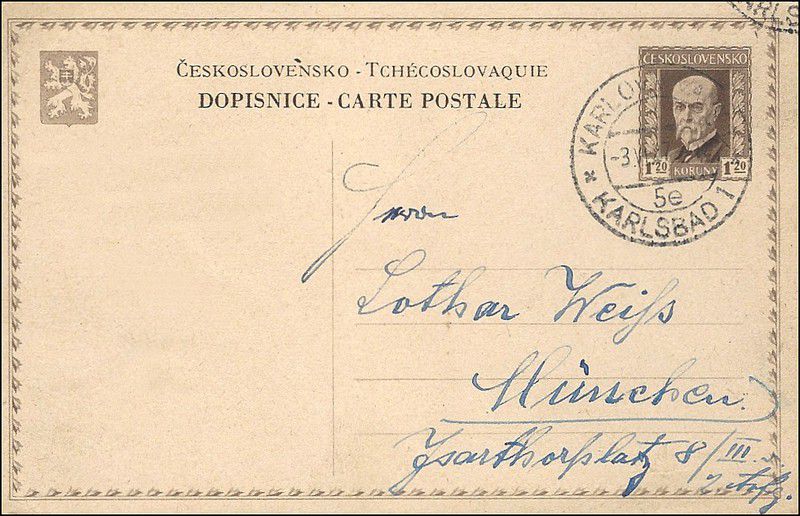 ČESKOSLOVENSKO - TCHÉCOSLOVAQUIE
DOPISNICE - CARTE POSTALE
ČESKOSLOVENSKO
1·20 KORUNY 1·20
-3.
5e
* KARLSBAD 1
Herrn
Lothar Weiß
München
Isarthorplatz 8/III